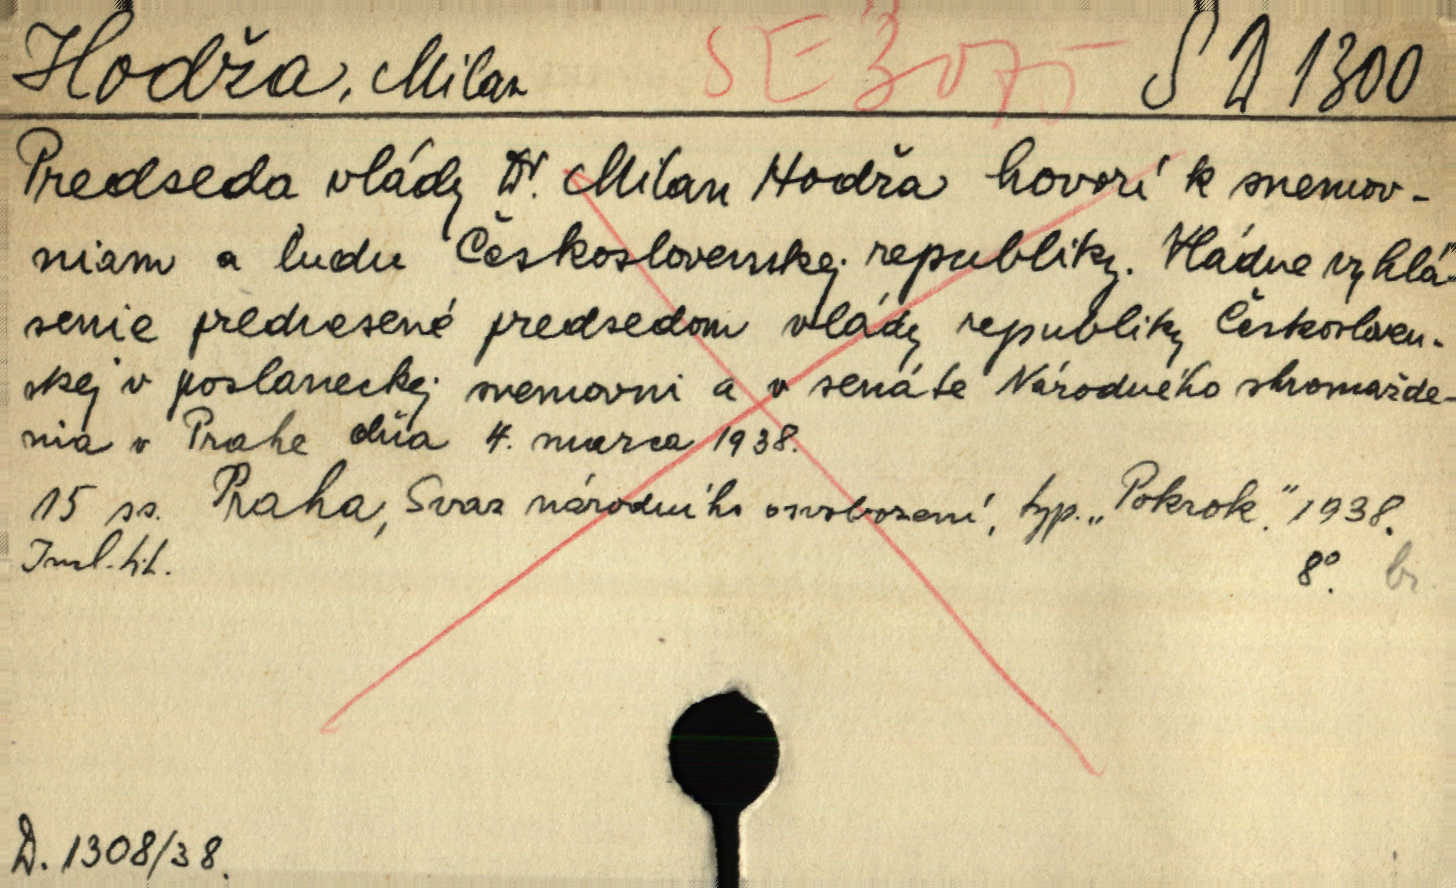 Hodža, Milan SE 3075 SD 1300
Predseda vlády Dr. Milan Hodža hovorí k snemov-
niam a ľudu Československej republiky. Vládne vyhlá-
senie prednesené predsedom vlády republiky Českosloven-
skej v poslaneckej snemovni a v senáte Národného shromažde-
nia v Prahe dňa 4. marca 1938.
15 ss. Praha, Svaz národního osvobození, typ. „Pokrok." 1938.
8°. br.
D. 1308/38.